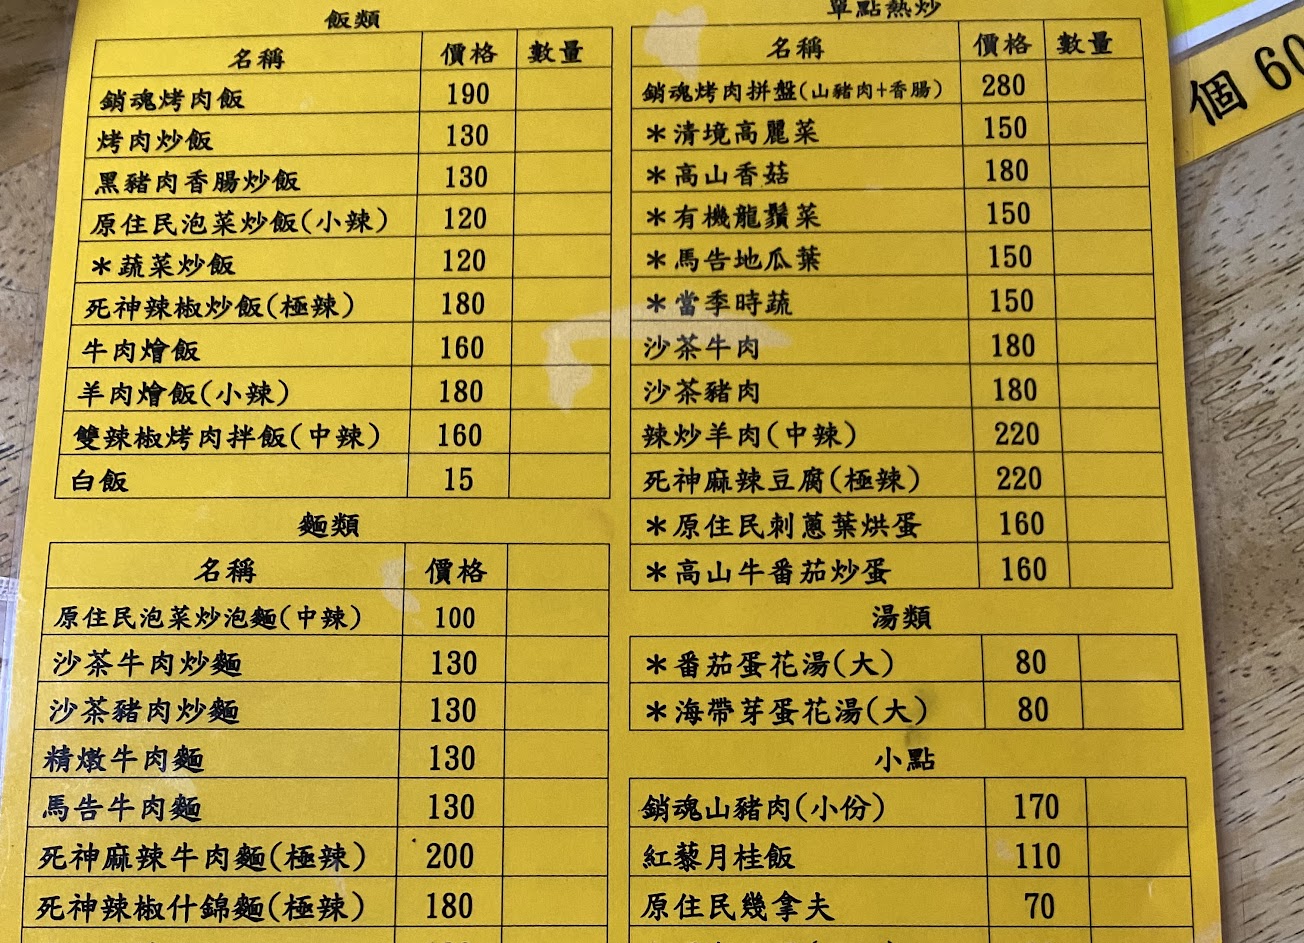 飯類
名稱 價格 數量
銷魂烤肉飯 190
烤肉炒飯 130
黑豬肉香腸炒飯 130
原住民泡菜炒飯(小辣) 120
＊蔬菜炒飯 120
死神辣椒炒飯(極辣) 180
牛肉燴飯 160
羊肉燴飯(小辣) 180
雙辣椒烤肉拌飯(中辣) 160
白飯 15
麵類
名稱 價格
原住民泡菜炒泡麵(中辣) 100
沙茶牛肉炒麵 130
沙茶豬肉炒麵 130
精燉牛肉麵 130
馬告牛肉麵 130
死神麻辣牛肉麵(極辣) 200
死神辣椒什錦麵(極辣) 180
單點熱炒
名稱 價格 數量
銷魂烤肉拼盤(山豬肉+香腸) 280
＊清境高麗菜 150
＊高山香菇 180
＊有機龍鬚菜 150
＊馬告地瓜葉 150
＊當季時蔬 150
沙茶牛肉 180
沙茶豬肉 180
辣炒羊肉(中辣) 220
死神麻辣豆腐(極辣) 220
＊原住民刺蔥葉烘蛋 160
＊高山牛番茄炒蛋 160
湯類
＊番茄蛋花湯(大) 80
＊海帶芽蛋花湯(大) 80
小點
銷魂山豬肉(小份) 170
紅藜月桂飯 110
原住民幾拿夫 70
個 60